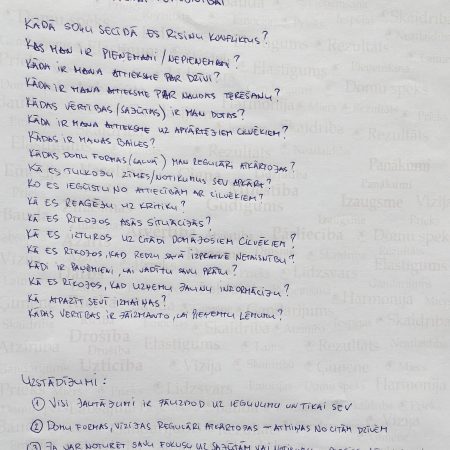 KĀDĀ SOĻU SECĪBĀ ES RISINU KONFLIKTUS?
KAS MAN IR PIEŅEMAMI/NEPIEŅEMAMI?
KĀDA IR MANA ATTIEKSME PAR DZĪVI?
KĀDA IR MANA ATTIEKSME PAR NAUDAS TĒRĒŠANU?
KĀDAS VĒRTĪBAS/SAJŪTAS) IR MAN DOTAS?
KĀDA IR MANA ATTIEKSME UZ APKĀRTĒJIEM CILVĒKIEM?
KĀDAS IR MANAS BAILES?
KĀDAS DOMU FORMAS (GALVĀ) MAN REGULĀRI ATKĀRTOJAS?
KĀ ES TULKOJU ZĪMES/NOTIKUMUS SEV APKĀRT?
KO ES IEGŪSTU NO ATTIECĪBĀM AR CILVĒKIEM?
KĀ ES REAĢĒJU UZ KRITIKU?
KĀ ES RĪKOJOS ASĀS SITUĀCIJĀS?
KĀ ES IZTUROS UZ CITĀDI DOMĀJOŠIEM CILVĒKIEM?
KĀ ES RĪKOJOS, KAD REDZU SAVĀ IZPRATNĒ NETAISNĪBU?
KĀDI IR PAŅĒMIENI, LAI VADĪTU SAVU PRĀTU?
KĀ ES RĪKOJOS, KAD UZŅEMU JAUNU INFORMĀCIJU?
KĀ ATPAZĪT SEVĪ IZMAIŅAS?
KĀDAS VĒRTĪBAS IR JĀIZMANTO, LAI PIEŅEMTU LĒMUMU?
UZSTĀDĪJUMI:
① VISI JAUTĀJUMI IR JĀUZDOD UZ IEGUVUMU UN TIKAI SEV
② DOMU FORMAS, VĪZIJAS REGULĀRI ATKĀRTOJAS – ATMIŅAS NO CITĀM DZĪVĒM
③ JA VAR NOTURĒT SAVU FOKUSU UZ SAJŪTĀM VAI